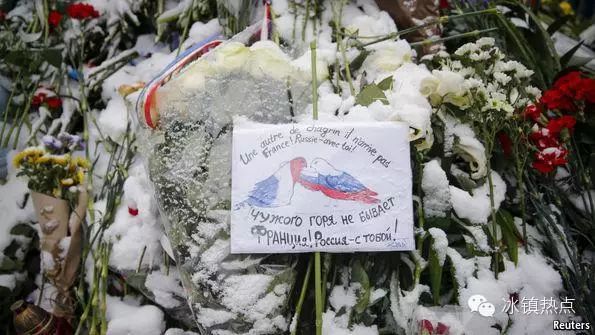 Une autre de chagrin il n'arrive pas
France! Russie-avec toi!
ЧУЖОГО ГОРЯ НЕ БЫВАЕТ
ФРАНЦИЯ! РОССИЯ-С ТОБОЙ!
冰镇热点
Reuters